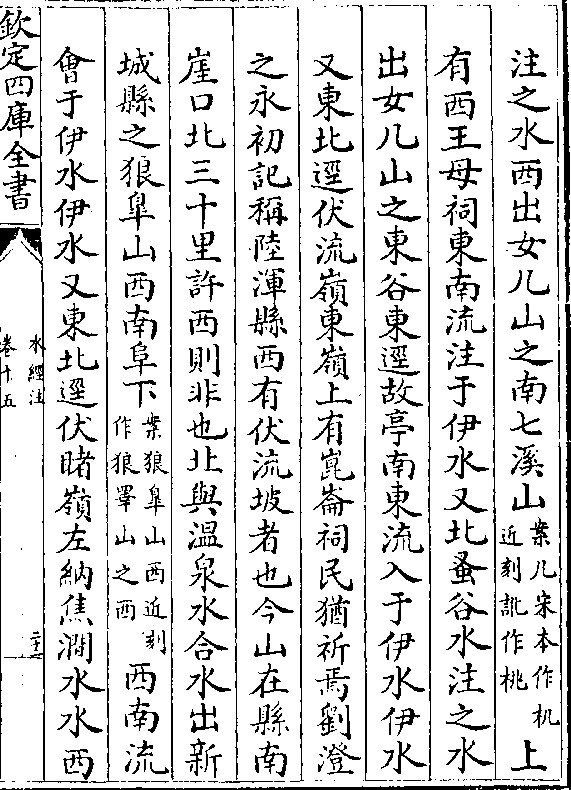 注之水西出女几山之南七溪山案几宋本作机近刻訛作桃上
有西王母祠東南流注于伊水又北蚤谷水注之水
出女几山之東谷東逕故亭南東流入于伊水伊水
又東北逕伏流嶺東嶺上有崑崙祠民猶祈焉劉澄
之永初記稱陸渾縣西有伏流坡者也今山在縣南
崖口北三十里許西則非也北與溫泉水合水出新
城縣之狼臯山西南阜下案狼臯山西近刻作狼澤山之西西南流
會于伊水伊水又東北逕伏睹嶺左納焦澗水水西
欽定四庫全書
水經注
卷十五